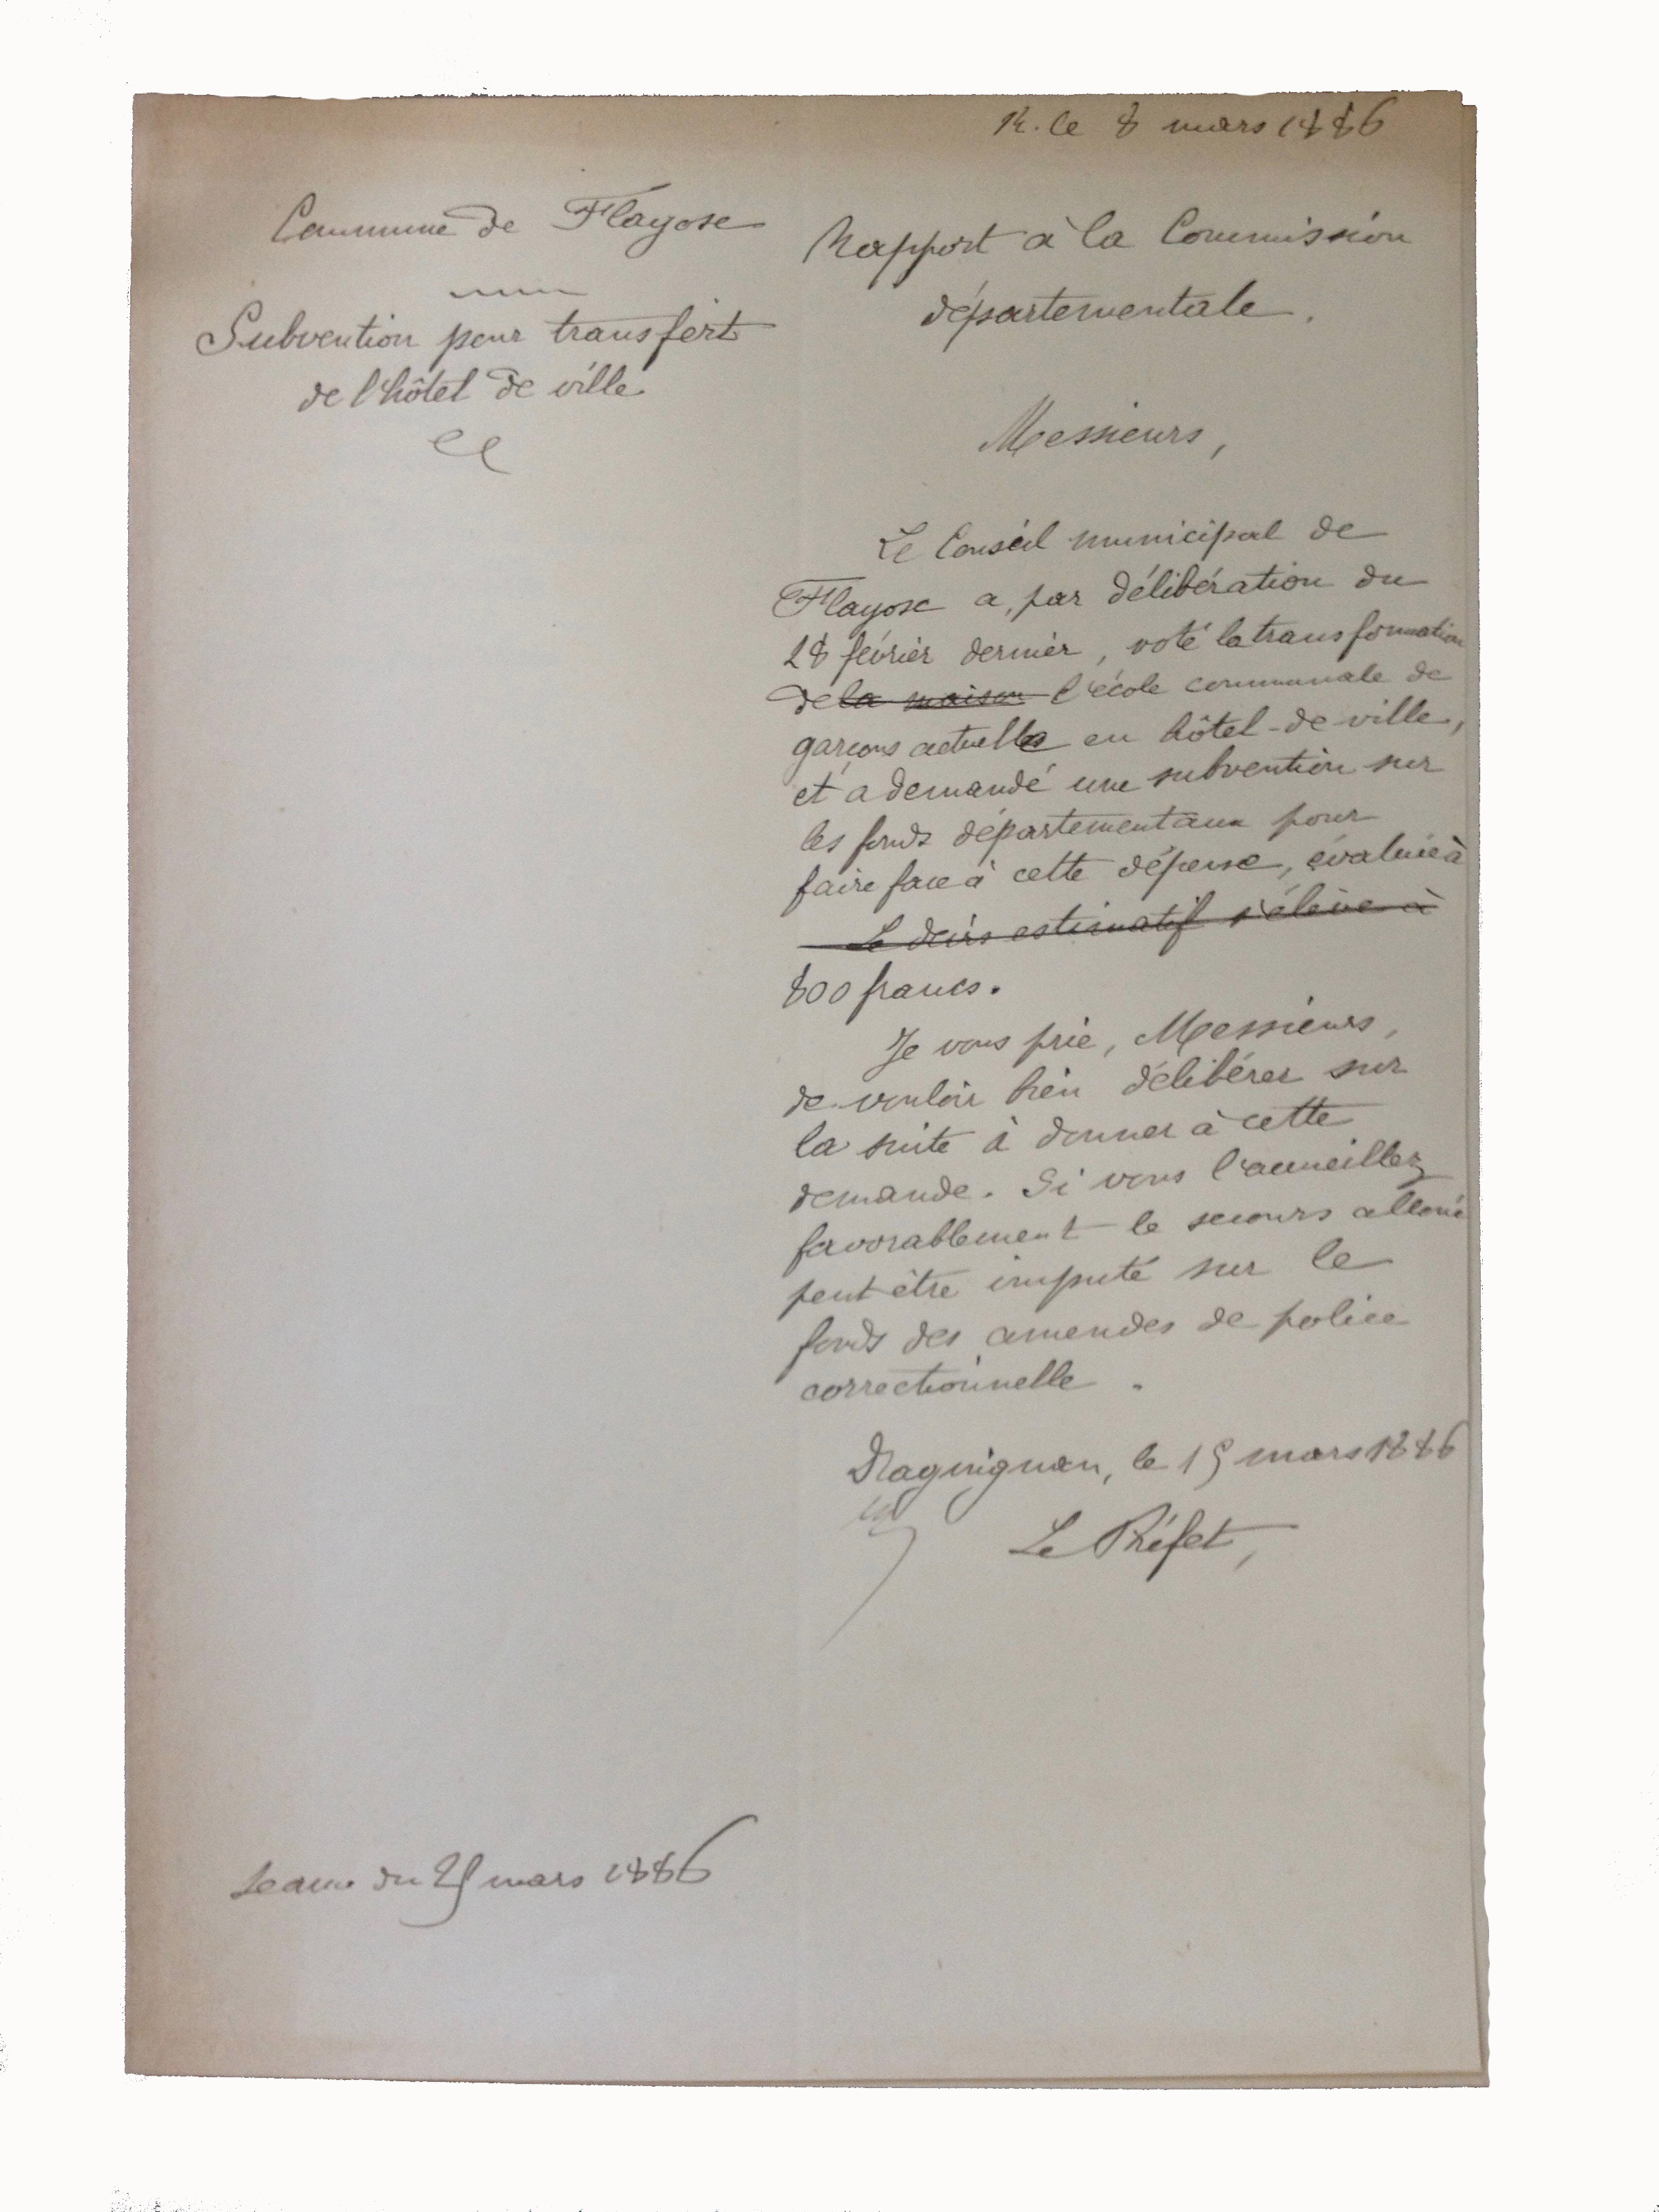 R. le 8 mars 1886
Commune de Flayosc
Subvention pour transfert
de l'hôtel de ville
Rapport à la Commission
départementale.
Messieurs,
Le Conseil municipal de
Flayosc a, par délibération du
28 février dernier, voté la transformation
de la maison l'école communale de
garçons actuelle en hôtel-de-ville,
et a demandé une subvention sur
les fonds départementaux pour
faire face à cette dépense, évaluée à
Le devis estimatif s'élève à
800 francs.
Je vous prie, Messieurs,
de vouloir bien délibérer sur
la suite à donner à cette
demande. Si vous l'accueillez
favorablement le secours alloué
peut être imputé sur le
fonds des amendes de police
correctionnelle.
Draguignan, le 15 mars 1886
Le Préfet,
Séance du 25 mars 1886